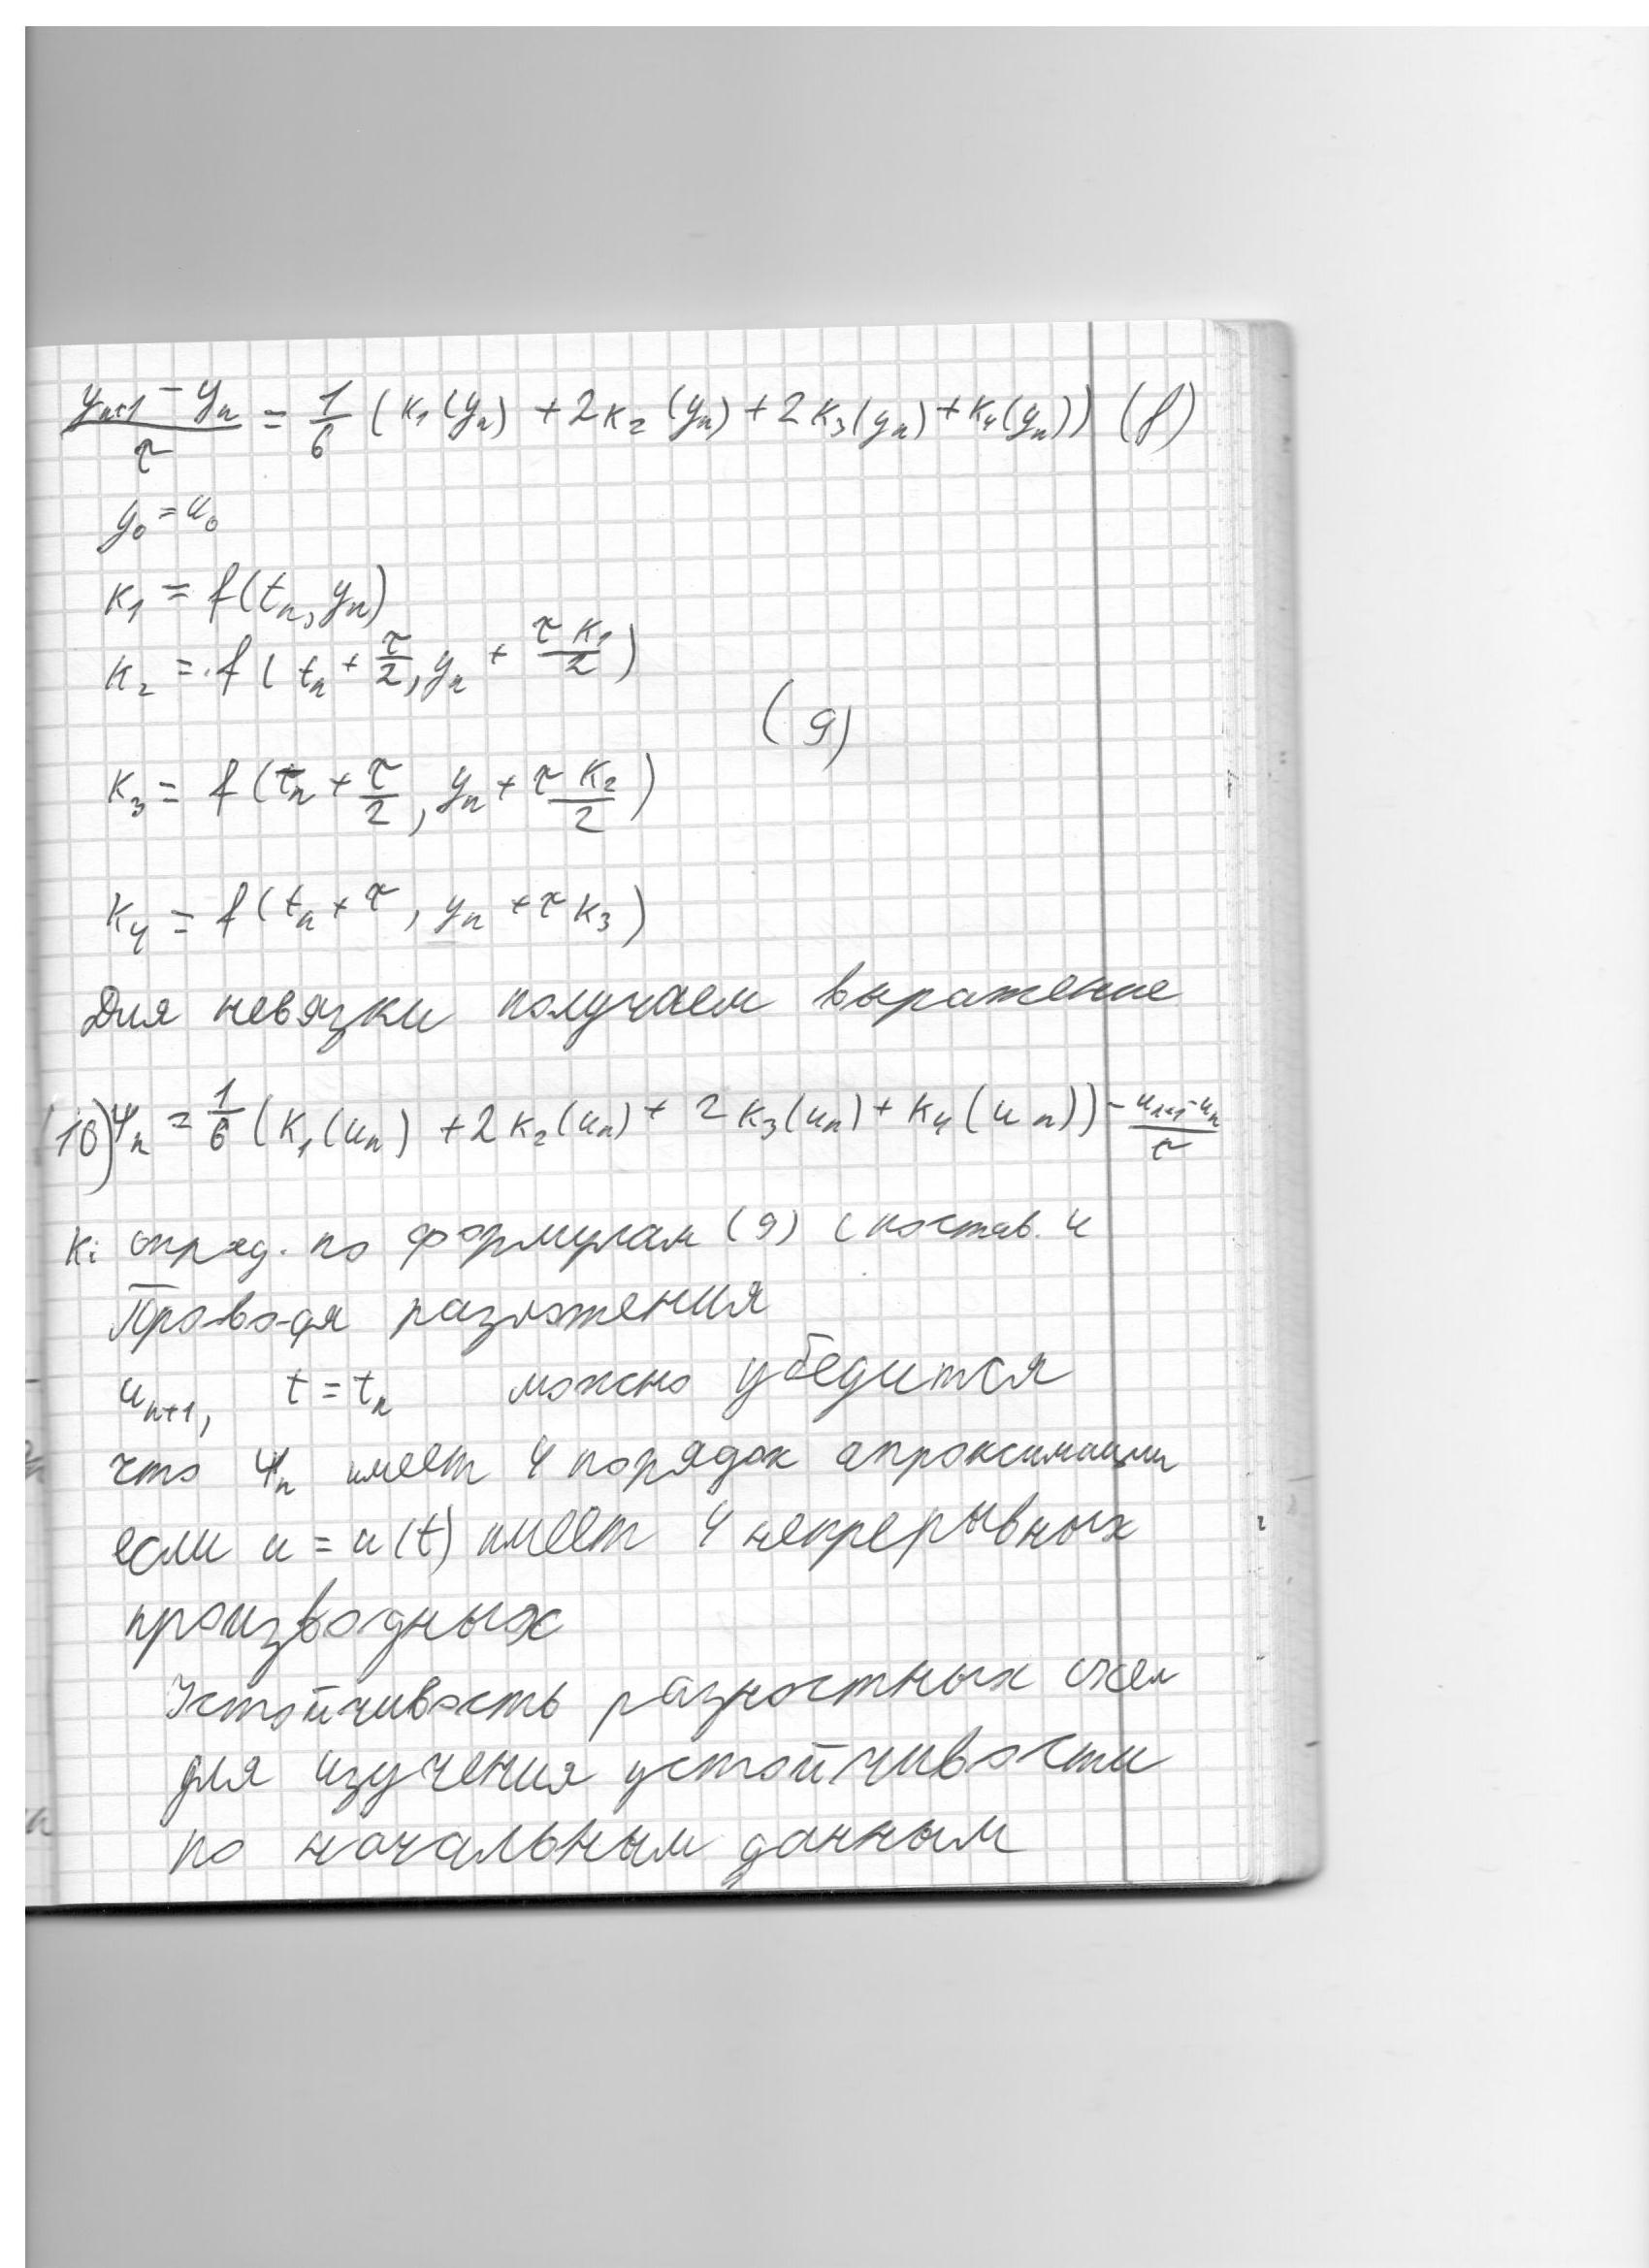 (yₙ₊₁ − yₙ)/τ = 1/6 (к₁(yₙ) + 2к₂(yₙ) + 2к₃(yₙ) + к₄(yₙ)) (8)
y₀ = u₀
к₁ = f(tₙ, yₙ)
к₂ = f(tₙ + τ/2, yₙ + τк₁/2)
(9)
к₃ = f(tₙ + τ/2, yₙ + τк₂/2)
к₄ = f(tₙ + τ, yₙ + τк₃)
Для невязки получаем выражение
(10) ψₙ = 1/6 (к₁(uₙ) + 2к₂(uₙ) + 2к₃(uₙ) + к₄(uₙ)) − (uₙ₊₁ − uₙ)/τ
кᵢ опред. по формулам (9) (постав. u
Проводя разложения
uₙ₊₁, t = tₙ можно убедится
что ψₙ имеет 4 порядок апроксимации
если u = u(t) имеет 4 непрерывных
производных
Устойчивость разностных схем
для изучения устойчивости
по начальным данным